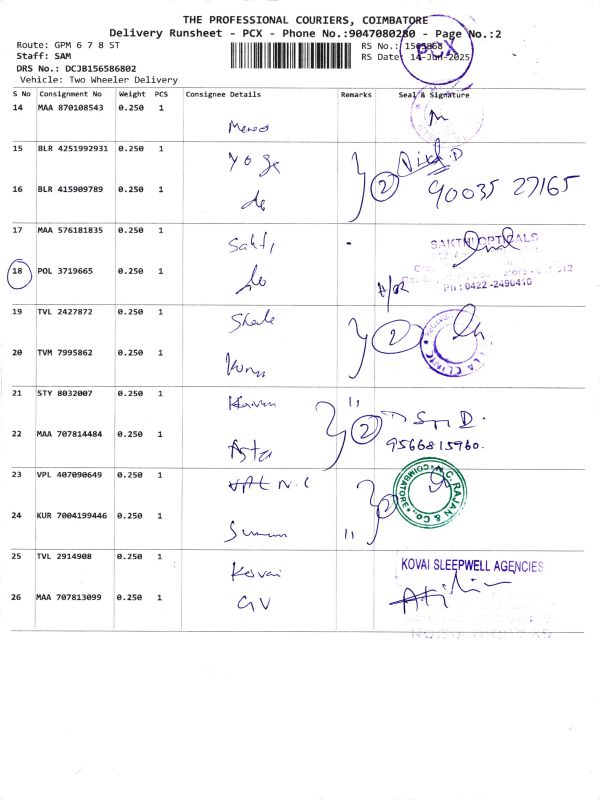 THE PROFESSIONAL COURIERS, COIMBATORE
Delivery Runsheet - PCX - Phone No.:9047080280 - Page No.:2
Route: GPM 6 7 8 ST
RS No.: 1565868
PCX
Staff: SAM
RS Date: 14-Jun-2025
DRS No.: DCJB156586802
Vehicle: Two Wheeler Delivery
S No Consignment No Weight PCS Consignee Details Remarks Seal & Signature
14 MAA 870108543 0.250 1
15 BLR 4251992931 0.250 1 Yoga
2 D
16 BLR 415909789 0.250 1 do
90035 27165
17 MAA 576181835 0.250 1 Sakti
SAKTHI OPTICALS
18 POL 3719665 0.250 1 do
Ph : 0422 -2490410
19 TVL 2427872 0.250 1
2
20 TVM 7995862 0.250 1
CLINIC
21 STY 8032007 0.250 1 "
2
22 MAA 707814484 0.250 1 Asta
9566815960.
23 VPL 407090649 0.250 1
2
C. RAJAN & CO. COIMBATORE
24 KUR 7004199446 0.250 1 "
25 TVL 2914908 0.250 1 Kovai
KOVAI SLEEPWELL AGENCIES
26 MAA 707813099 0.250 1 GV